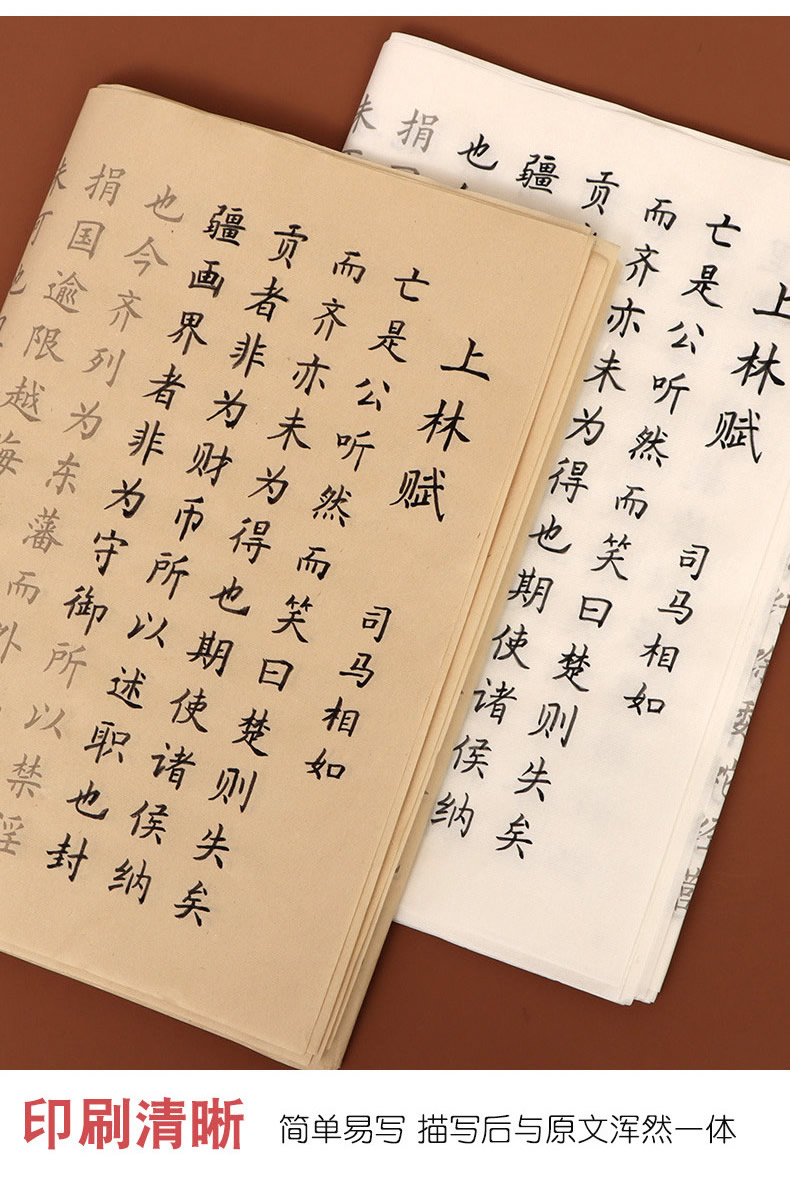 上林赋
司马相如
亡是公听然而笑曰楚则失矣
而齐亦未为得也期使诸侯纳
贡者非为财币所以述职也封
疆画界者非为守御所以禁淫
也今齐列为东藩而外
捐国逾限越海
上林赋
司马相如
亡是公听然而笑曰楚则失矣
而齐亦未为得也期使诸侯纳
贡
疆
也
捐
印刷清晰
简单易写 描写后与原文浑然一体